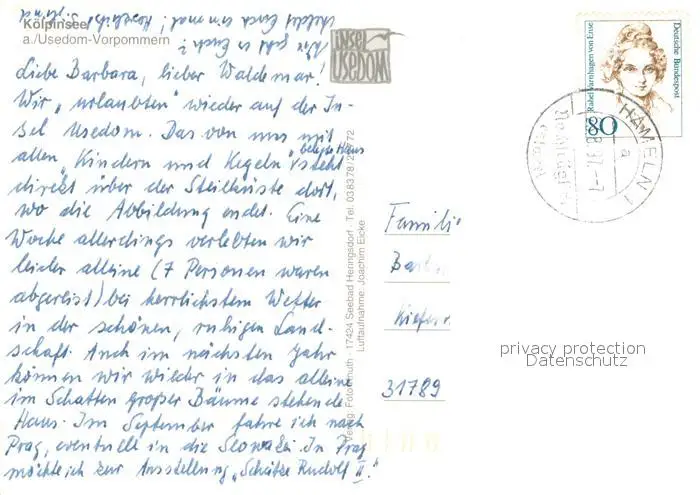 Kölpinsee
a./Usedom-Vorpommern
Liebe Barbara, lieber Waldemar!
Wir „urlaubten" wieder auf der In-
sel Usedom. Das von uns mit
allen „Kindern und Kegeln" belegte Haus steht
direkt über der Steilküste dort,
wo die Abbildung endet. Eine
Woche allerdings verlebten wir
leider alleine (7 Personen waren
abgereist) bei herrlichstem Wetter
in der schönen, ruhigen Land-
schaft. Auch im nächsten Jahr
können wir wieder in das alleine
im Schatten großer Bäume stehende
Haus. Im September fahre ich nach
Prag, eventuelle in die Slowakei. In Prag
möchte ich zur Ausstellung „Schätze Rudolf II."
Wie geht es Euch?
Meldet Euch
mal! Herzlichst
INSEL
USEDOM
17424 Seebad Heringsdorf · Tel. 038378/
Luftaufnahme: Joachim Eicke
Deutsche Bundespost
Rahel Varnhagen von Ense
80
HAMELN 1
a
Familie
31789
privacy protection
Datenschutz